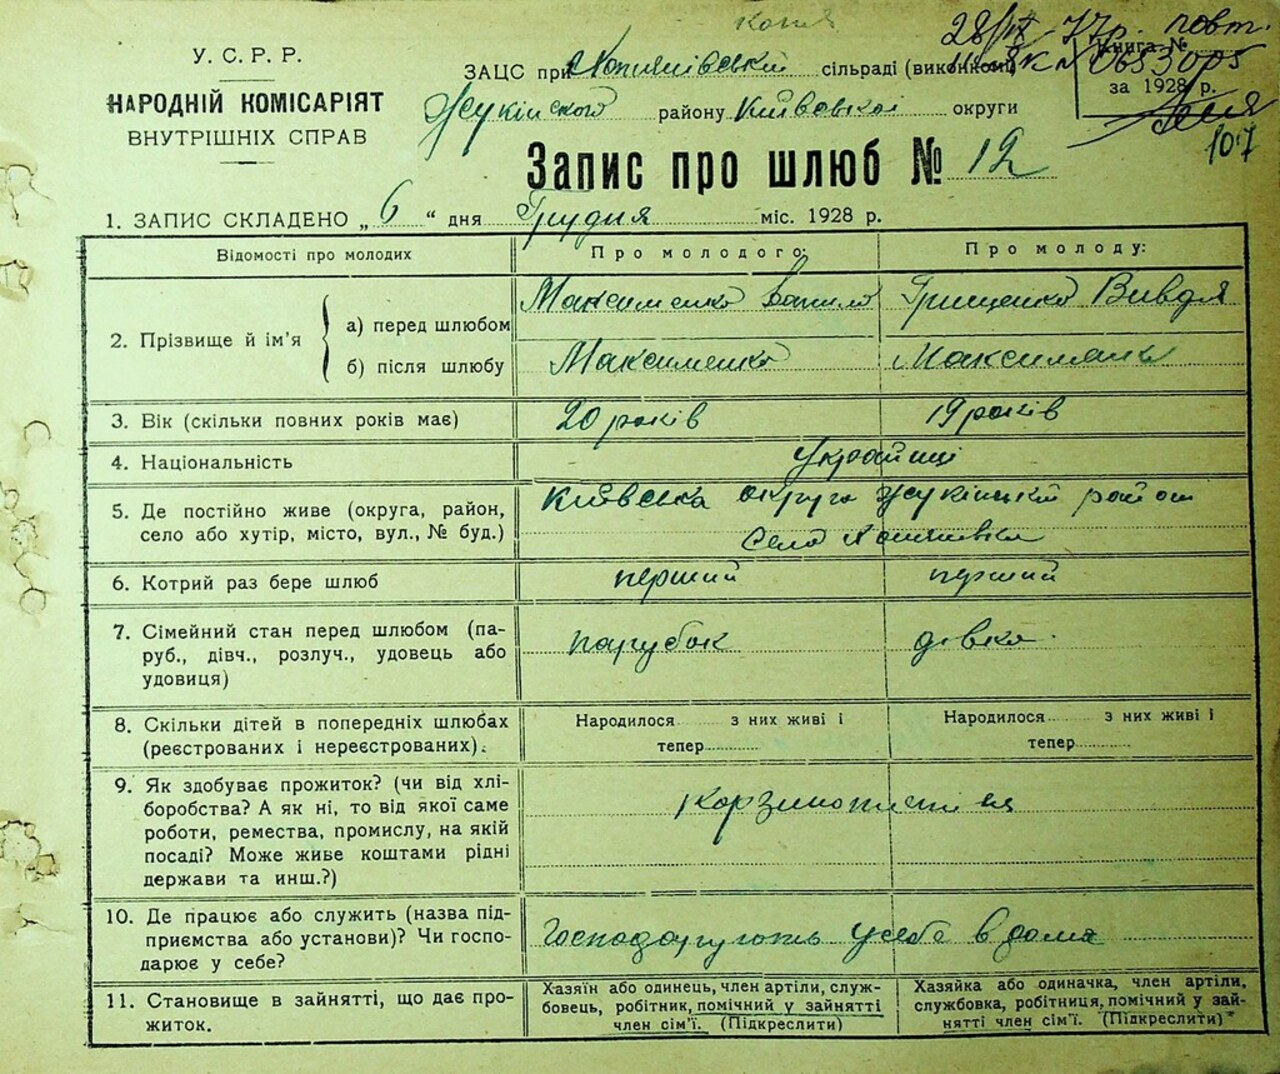 копія
28/IX 77р. повт.
У. С. Р. Р.
НАРОДНІЙ КОМІСАРІЯТ
ВНУТРІШНІХ СПРАВ
ЗАЦС при сільраді (виконкомі)
Жукінського району Київської округи
Книга №
за 1928 р.
107
Запис про шлюб № 12
1. ЗАПИС СКЛАДЕНО „ 6 “ дня Грудня міс. 1928 р.
Відомості про молодих Про молодого: Про молоду:
2. Прізвище й ім'я
а) перед шлюбом Максименко Гриценко Вивдя
б) після шлюбу Максименко Максименко
3. Вік (скільки повних років має) 20 років 19 років
4. Національність Українці
5. Де постійно живе (округа, район, Київська округа Жукінський район
село або хутір, місто, вул., № буд.) Село
6. Котрий раз бере шлюб перший перший
7. Сімейний стан перед шлюбом (па-
руб., дівч., розлуч., удовець або парубок дівка
удовиця)
8. Скільки дітей в попередніх шлюбах Народилося з них живі і Народилося з них живі і
(реєстрованих і нереєстрованих). тепер тепер
9. Як здобуває прожиток? (чи від хлі-
боробства? А як ні, то від якої саме
роботи, ремества, промислу, на якій
посаді? Може живе коштами рідні
держави та инш.?)
10. Де працює або служить (назва під-
приємства або установи)? Чи госпо- Господарюють у себе в дома
дарює у себе?
11. Становище в зайнятті, що дає про-
житок.
Хазяїн або одинець, член артіли, служ-
бовець, робітник, помічний у зайнятті
член сім'ї. (Підкреслити)
Хазяйка або одиначка, член артіли,
службовка, робітниця, помічний у зай-
нятті член сім'ї. (Підкреслити)